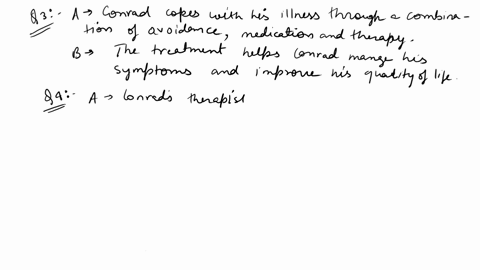 Q3:- A → Conrad copes with his illness through a combina-
tion of avoidence, medication and therapy.
B → The treatment helps Conrad mange his
symptoms and improve his quality of life.
Q4:- A → Conrad's therapist